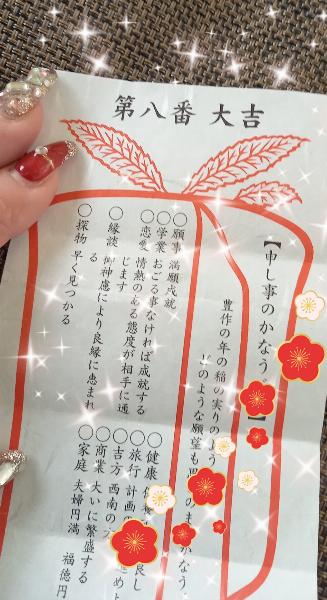 第八番 大吉
【申し事のかなう
豊作の年の稲の実りの
のような願望も
かなう
○願事 満願成就
○学業 おごる事なければ成就する
○恋愛 情熱のある態度が相手に通
じます
○縁談 御神慮により良縁に恵まれ
る
○探物 早く見つかる
○健康
○旅行 計画
良し
○吉方 西南の方
○商業 大いに繁盛する
○家庭 夫婦円満 福徳円